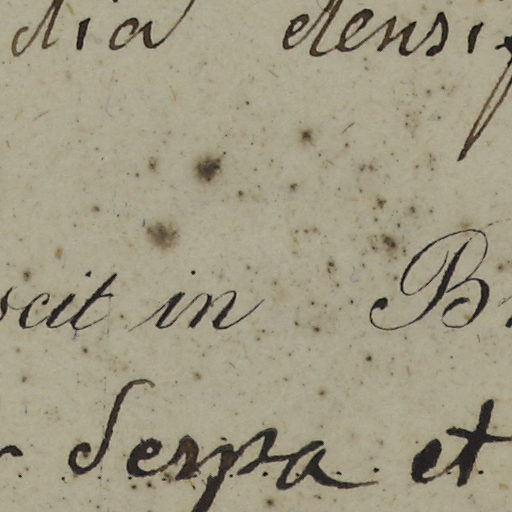 dia densi
ocit in B
Serpa et